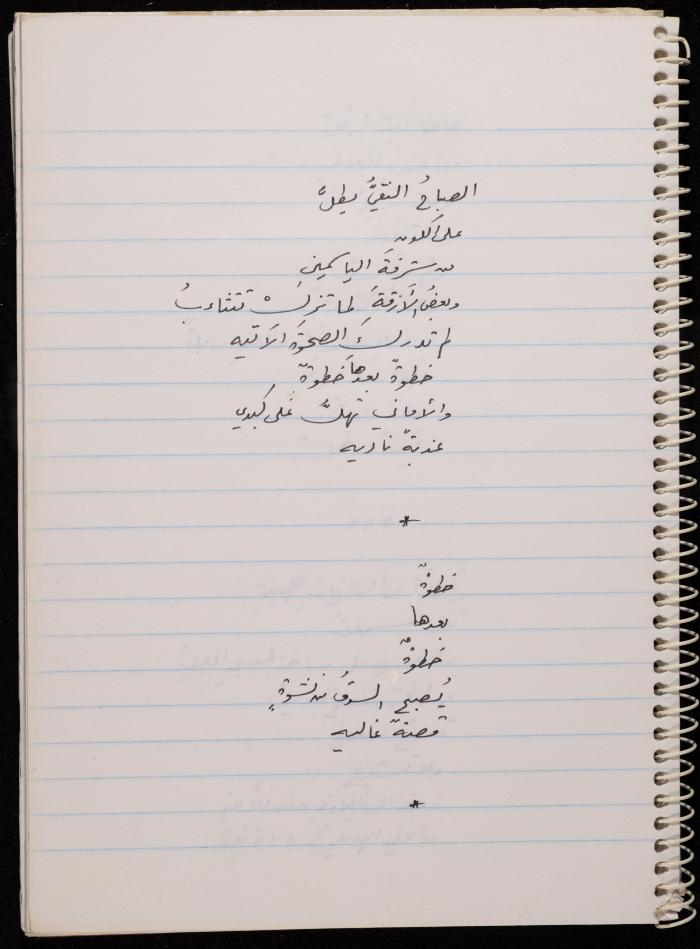 الصباحُ النقيُّ يطلُّ
على الكون
من شرفةِ الياسمينِ
وبعضُ الأزقةِ لما تزلْ تتثاءبُ
لم تدركَ الصحوةَ الآتيه
خطوةٌ بعدها خطوةٌ
والأماني تهلُّ على كبدي
عذبةً ناديه
*
خطوةٌ
بعدها
خطوةٌ
يُصبح السوقُ من نشوةٍ
قصةً غاليه
*